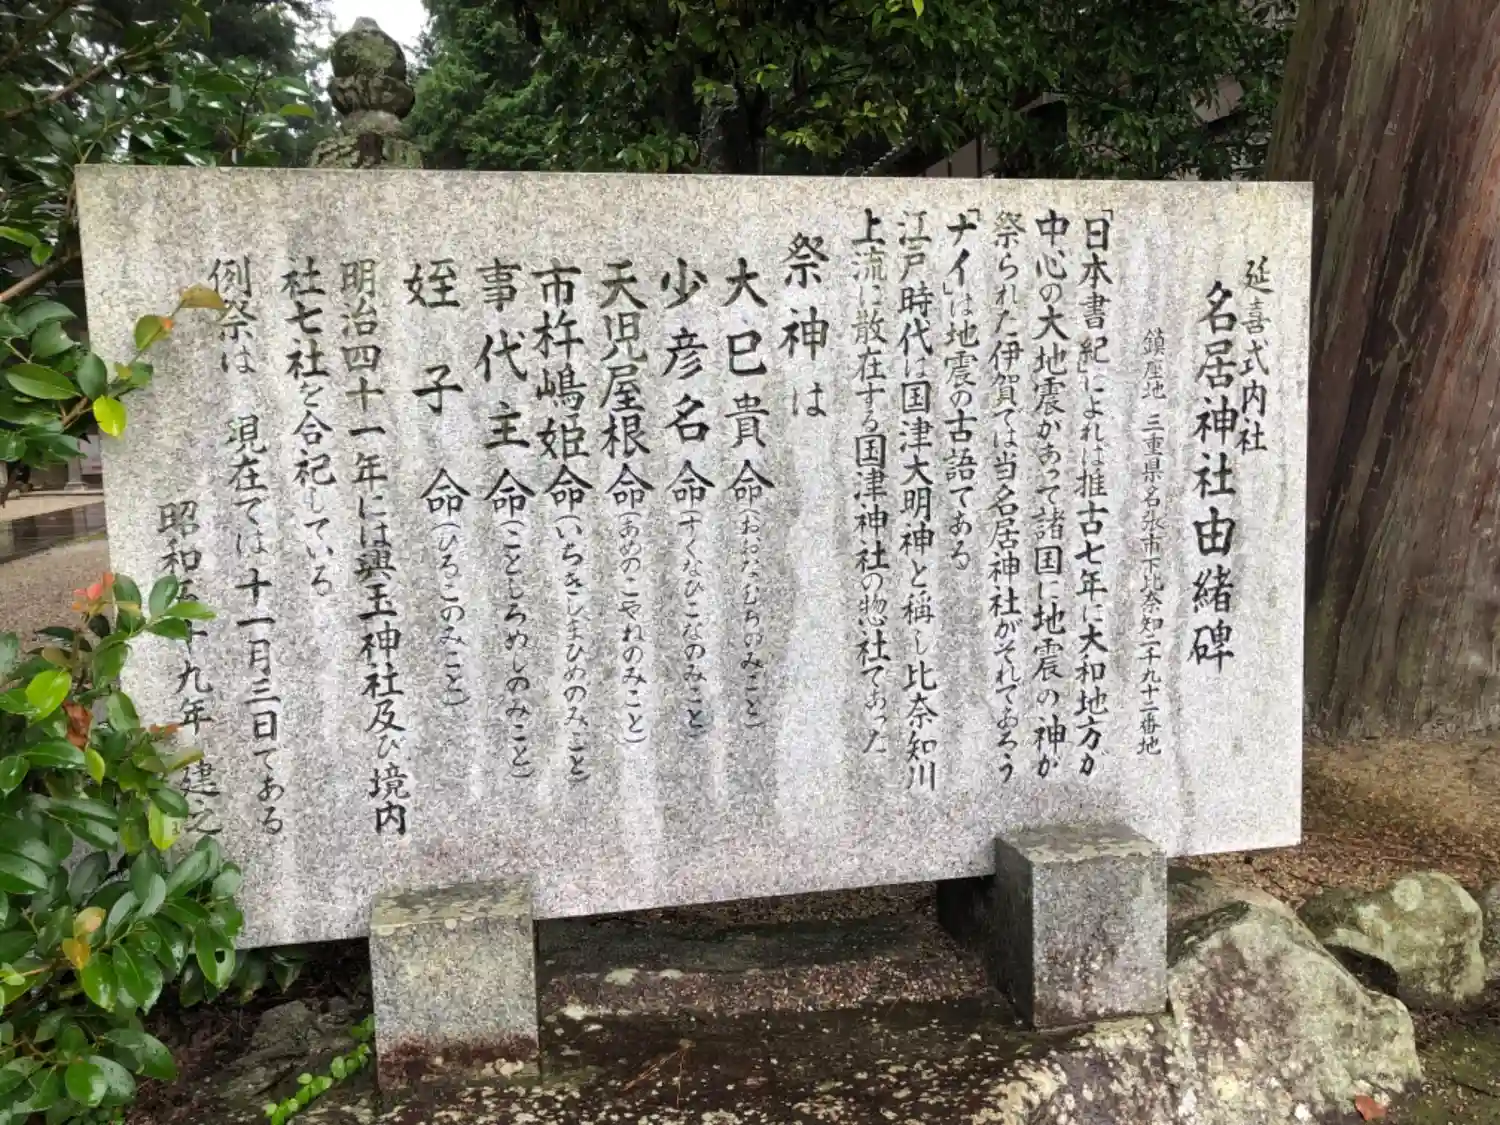 延喜式内社
名居神社由緒碑
鎮座地 三重県名張市下比奈知二千九十二番地
「日本書紀」によれば推古七年に大和地方が
中心の大地震があって諸国に地震の神が
祭られた伊賀では当名居神社がそれであろう
「ナイ」は地震の古語である
江戸時代は国津大明神と称し比奈知川
上流に散在する国津神社の惣社であった
祭神は
大巳貴命(おおなむちのみこと)
少彦名命(すくなひこなのみこと)
天児屋根命(あめのこやねのみこと)
市杵嶋姫命(いちきしまひめのみこと)
事代主命(ことしろぬしのみこと)
蛭子命(ひるこのみこと)
明治四十一年には興玉神社及び境内
社七社を合祀している
例祭は 現在では十一月三日である
昭和五十九年 建之